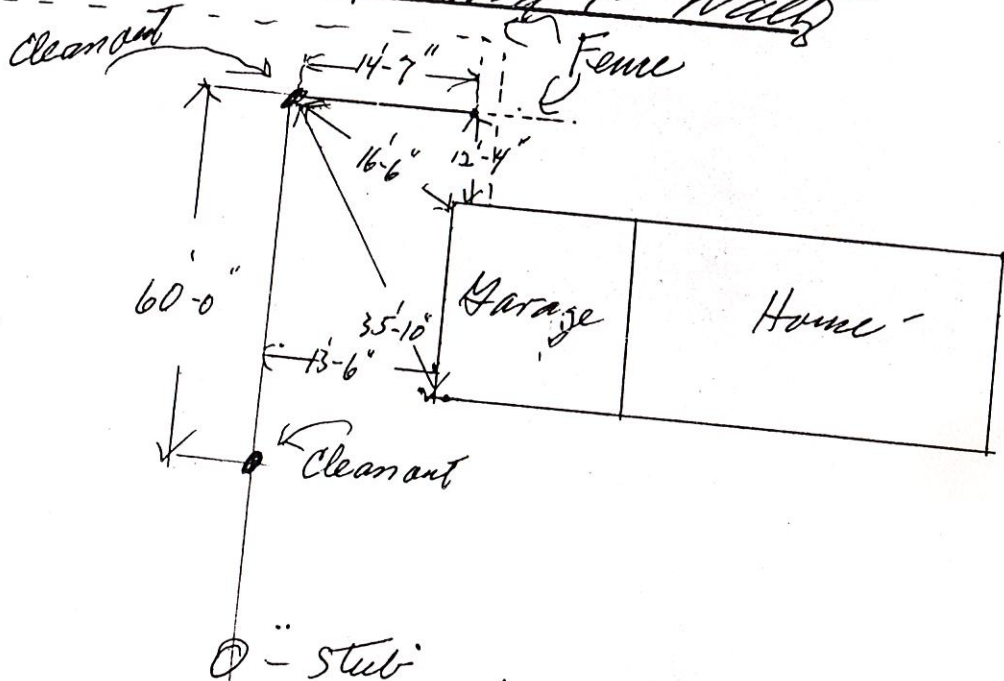 Walk
Cleanout
14'-7"
Fence
16'-6"
12'-4"
60'-0"
Garage
Home -
35'-10"
13'-6"
Cleanout
- Stub